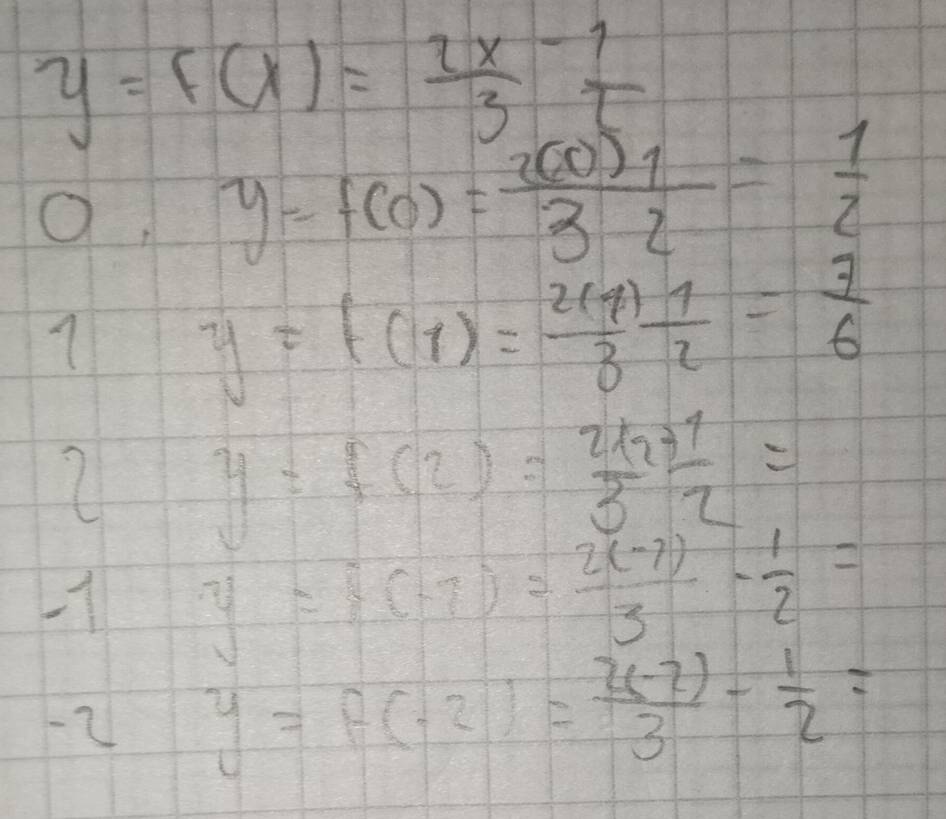 y = f(x) = 2x/3 - 1/2
0, y = f(0) = 2(0) 1/3 2 = 1/2
1 y = f(1) = 2(1)/3 - 1/2 = 7/6
2 y = f(2) = 2(2)/3 - 1/2 =
-1 y = f(-1) = 2(-1)/3 - 1/2 =
-2 y = f(-2) = 2(-2)/3 - 1/2 =